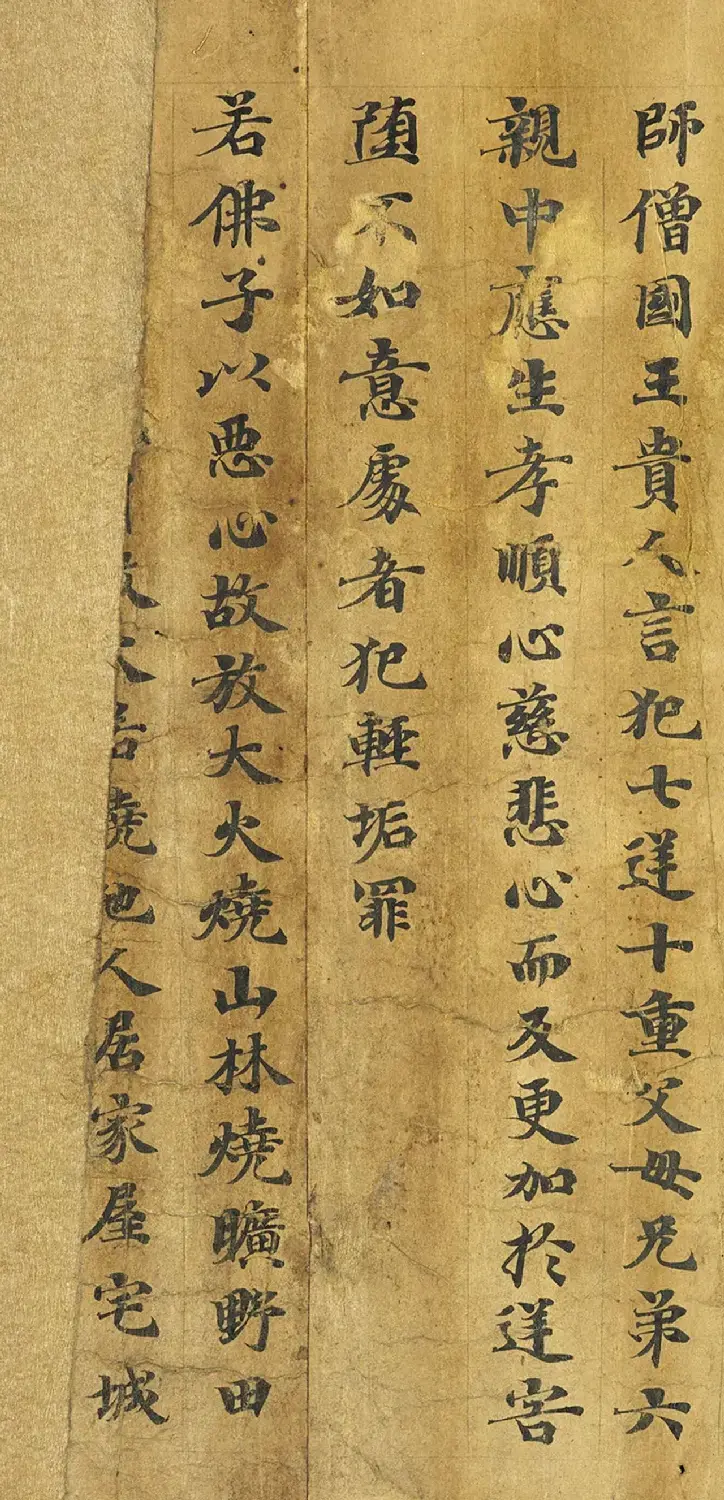 師僧國王貴人言犯七逆十重父母兄弟六
親中應生孝順心慈悲心而及更加於逆害
堕不如意處者犯輕垢罪
若佛子以悪心故放大火燒山林燒曠野田
放火若燒他人居家屋宅城